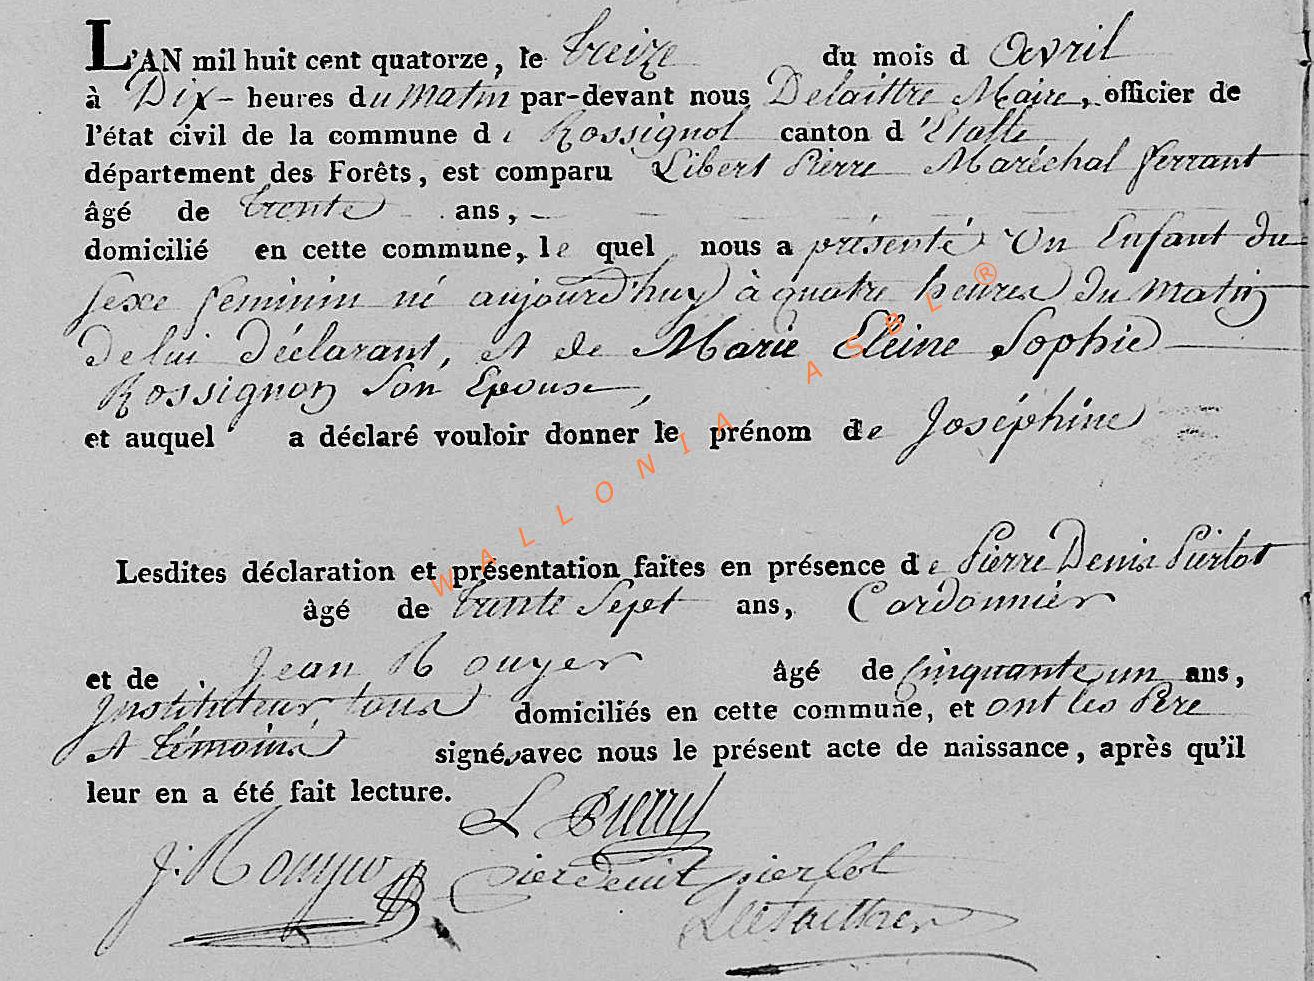 L'AN mil huit cent quatorze, le treize du mois d Avril
à Dix - heures du Matin par-devant nous Delaittre Maire, officier de
l'état civil de la commune de Rossignol canton d'Etalle
département des Forêts, est comparu Libert Pierre Maréchal ferrant
âgé de trente ans,
domicilié en cette commune, le quel nous a présenté Un Enfant du
sexe feminin né aujourd'huy à quatre heures du matin
de lui Déclarant, et de Marie Eleine Sophie
Rossignon Son Epouse,
et auquel a déclaré vouloir donner le prénom de Joséphine
Lesdites déclaration et présentation faites en présence de Pierre Denis Pierlot
âgé de trente Sept ans, Cordonnier
et de Jean Rouyer âgé de cinquante un ans,
Instituteur, tous domiciliés en cette commune, et ont les Père
et témoins signé avec nous le présent acte de naissance, après qu'il
leur en a été fait lecture.
L Pierre
J. Rouyer Pierdenit pierlot
Delaittre
WALLONIA ASBL ®